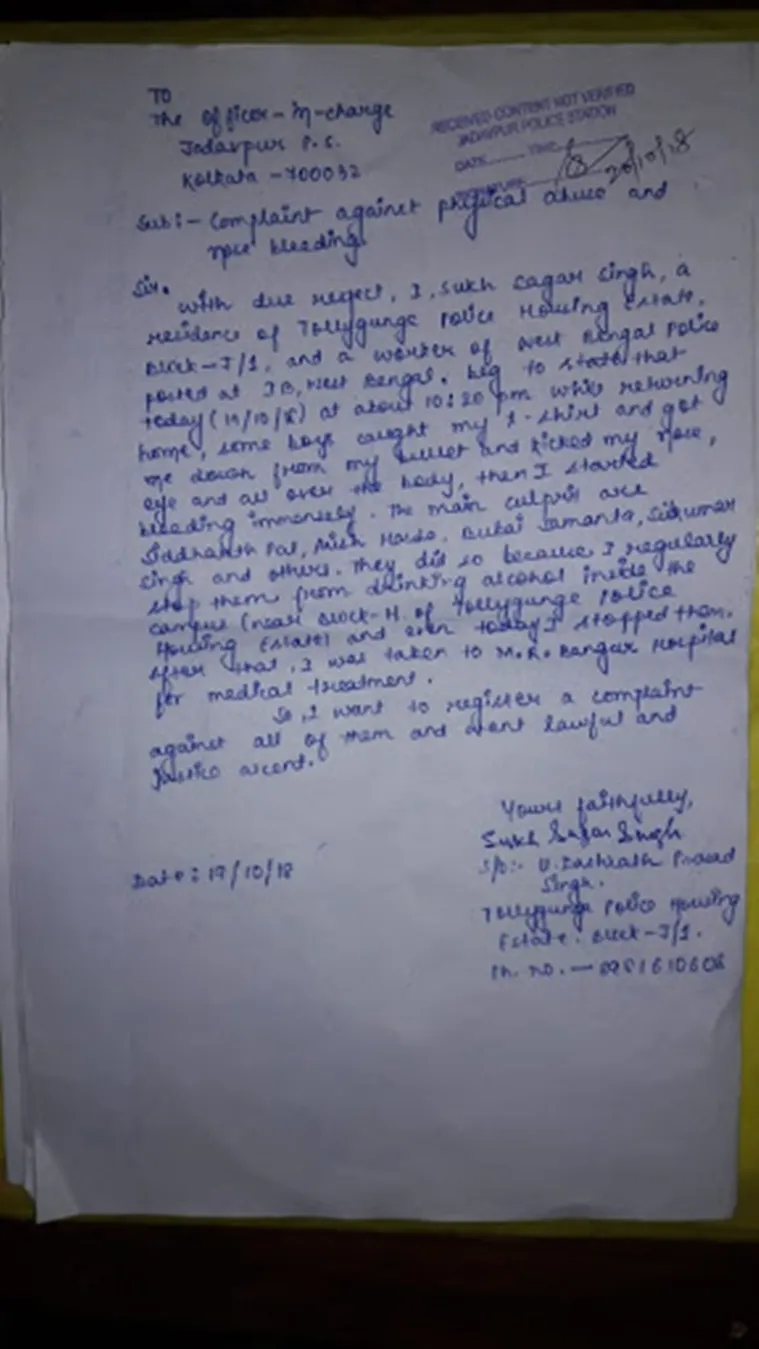 TO
The Officer-in-charge
Jadavpur P.S.
Kolkata - 700032
RECEIVED CONTENT NOT VERIFIED
JADAVPUR POLICE STATION
DATE TIME
SIGNATURE
20/10/18
Sub:- Complaint against physical abuse and
nose bleeding.
Sir,
With due respect, I, Sukh Sagar Singh, a
residence of Tollygunge Police Housing Estate,
Block-J/1, and a worker of West Bengal Police
posted at IB, West Bengal. beg to state that
today (19/10/18) at about 10:20 pm while returning
home, some boys caught my t-shirt and got
me down from my bullet and kicked my nose,
eye and all over the body, then I started
bleeding immensely. The main culprits are
Siddharth Pal, Bubai Samanta,
Singh and others. They did so because I regularly
stop them from drinking alcohol inside the
campus (near Block-H of Tollygunge Police
Housing Estate) and even today I stopped them.
After that, I was taken to M.R. Bangur Hospital
for medical treatment.
So, I want to register a complaint
against all of them and want lawful and
justice
Yours faithfully,
Sukh Sagar Singh
S/o:- Prasad
Singh.
Tollygunge Police Housing
Estate. Block-J/1.
Date: 19/10/18
Ph. no. —